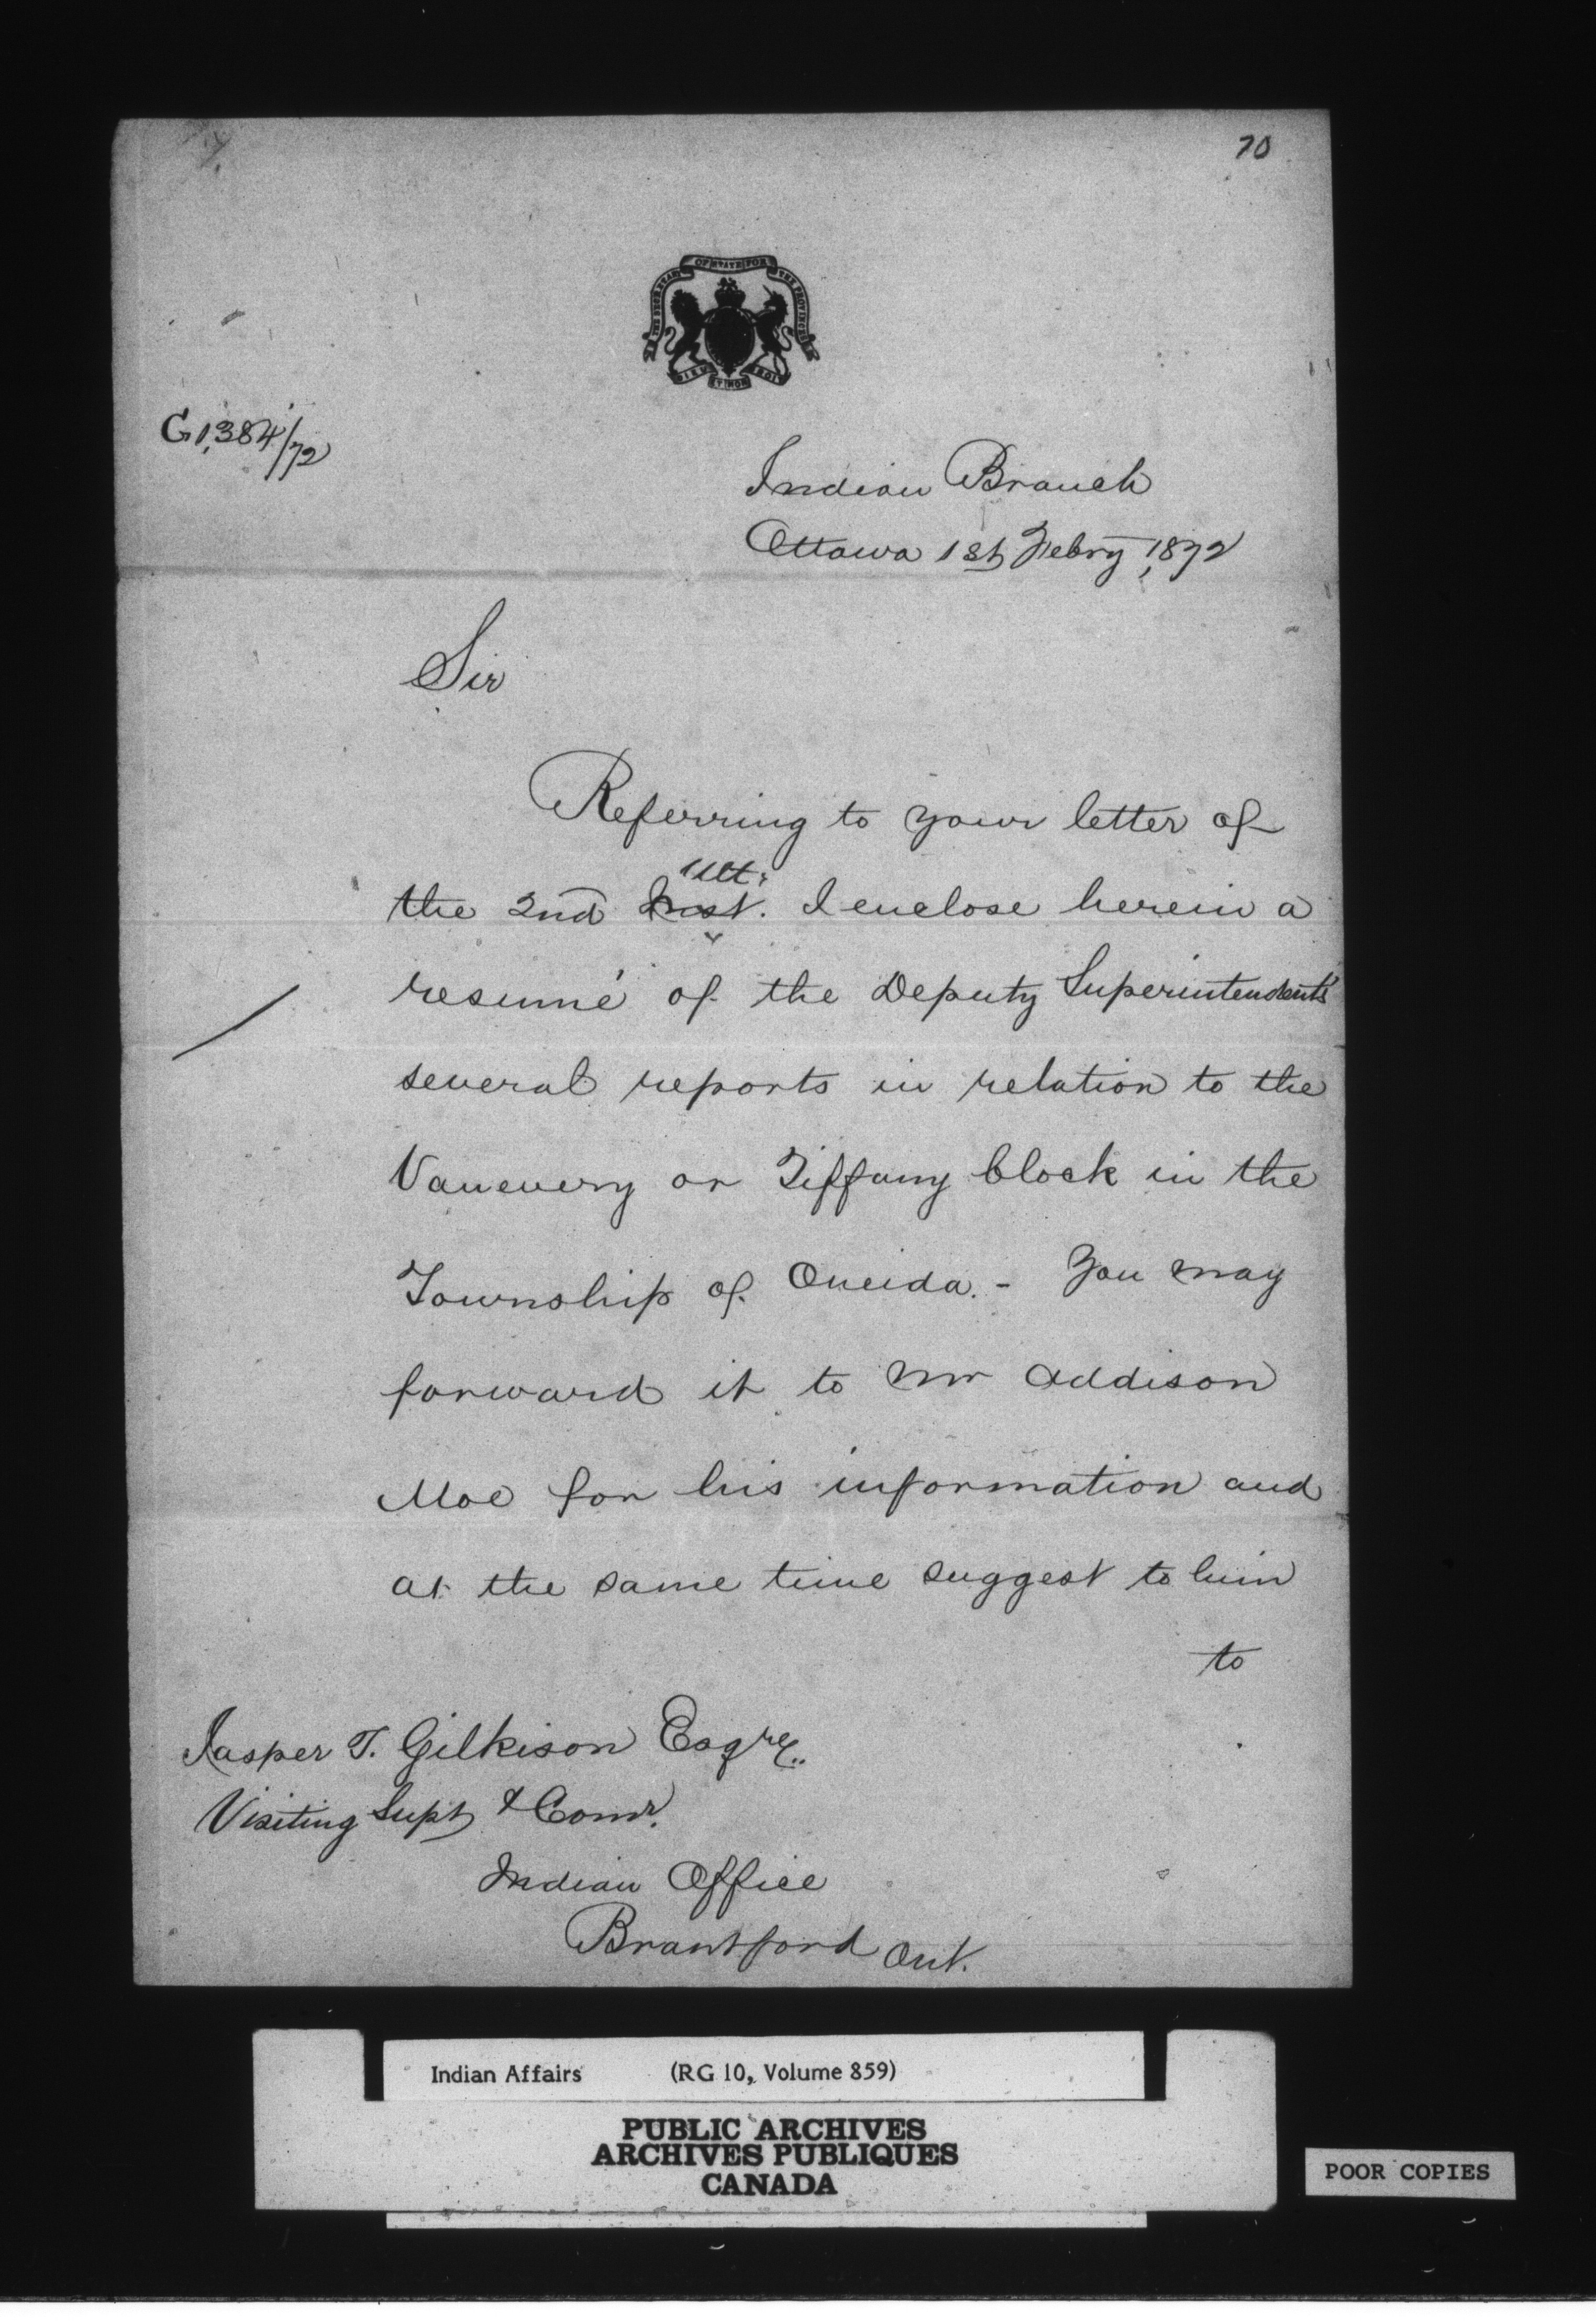 70
OF STATE FOR
THE PROVINCES
DIEU ET MON DROIT
G1,384/72
Indian Branch
Ottawa 1st Febry, 1872
Sir
Referring to your letter of
Ult:
the 2nd Inst. I enclose herein a
resumé of the Deputy Superintendent's
several reports in relation to the
Vanevery or Tiffany block in the
Township of Oneida. - You may
forward it to Mr Addison
Moe for his information and
at the same time suggest to him
to
Jasper T. Gilkison Esqre..
Visiting Supt & Comr.
Indian Office
Brantford Ont.
Indian Affairs (RG 10, Volume 859)
PUBLIC ARCHIVES
ARCHIVES PUBLIQUES
CANADA
POOR COPIES